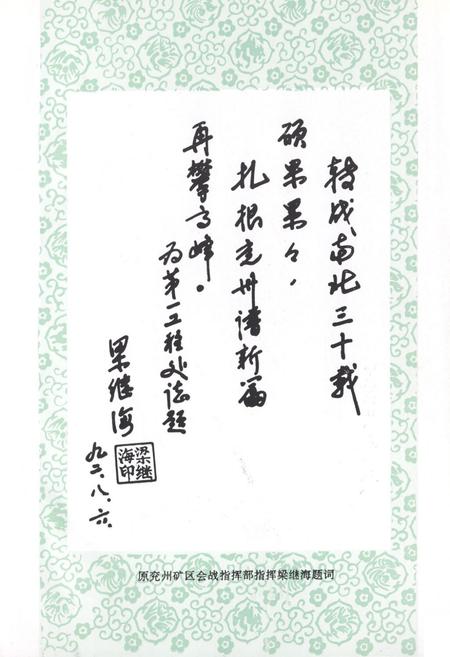 转战南北三十载
硕果累々，
扎根兖州谱新篇
再攀高峰。
为第一工程处志题
梁继海
九二.八.六.
梁继海印
原兖州矿区会战指挥部指挥梁继海题词